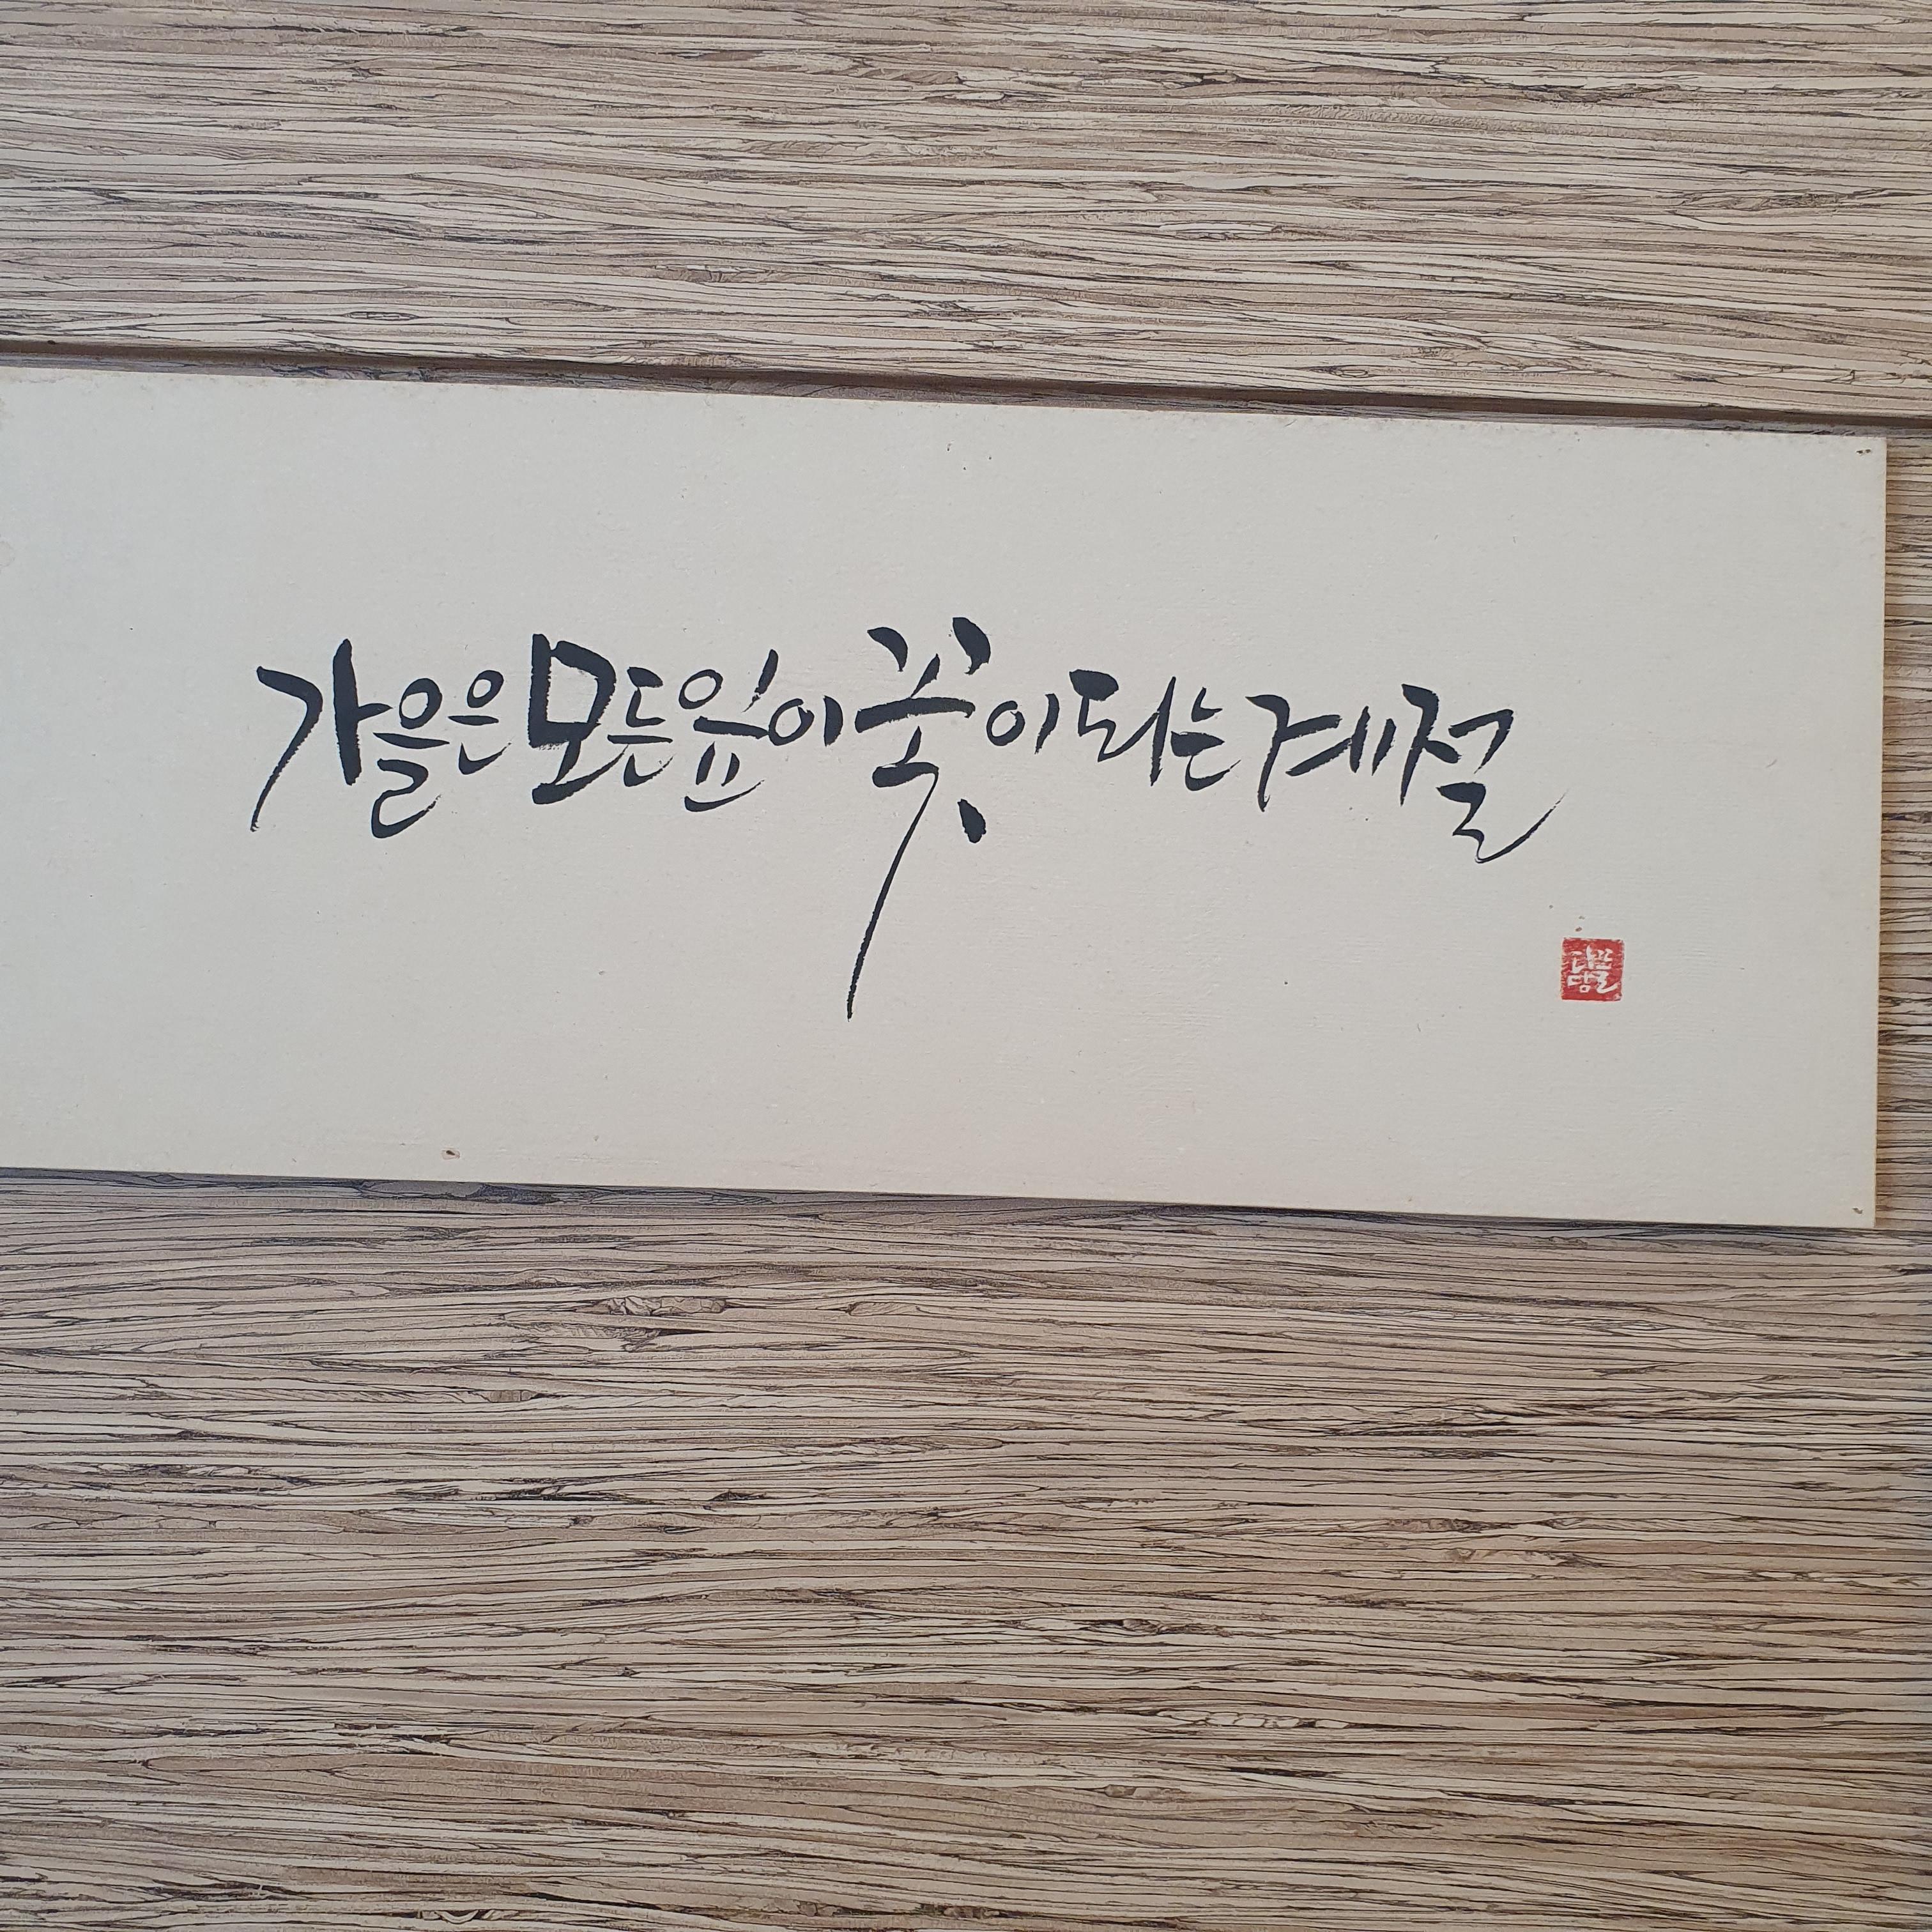 가을은 모든 잎이 꽃이 되는 계절